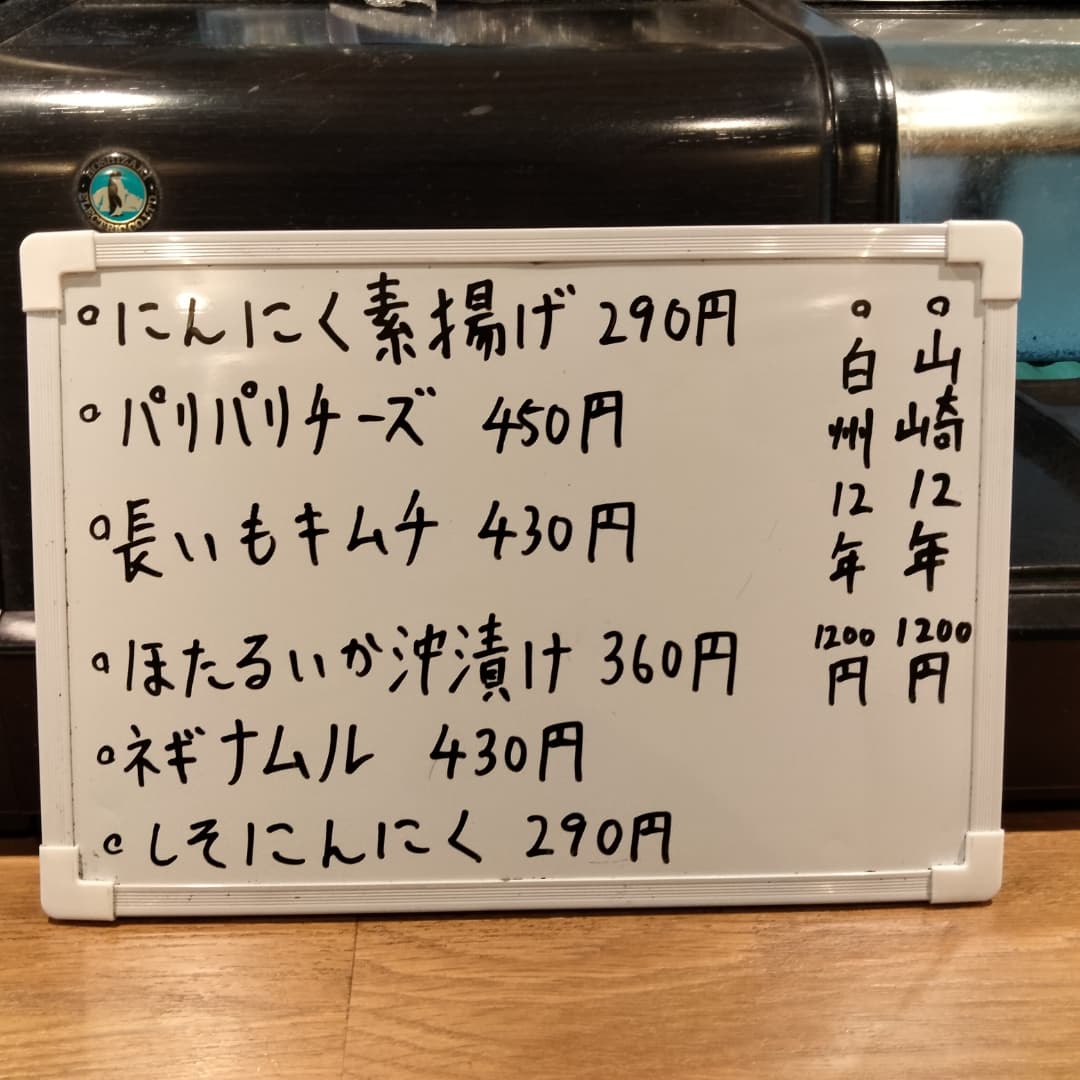 HOSHIZAKI
ELECTRIC CO.,LTD.
○にんにく素揚げ 290円
○パリパリチーズ 450円
○長いもキムチ 430円
○ほたるいか沖漬け 360円
○ネギナムル 430円
○しそにんにく 290円
○山崎12年 1200円
○白州12年 1200円